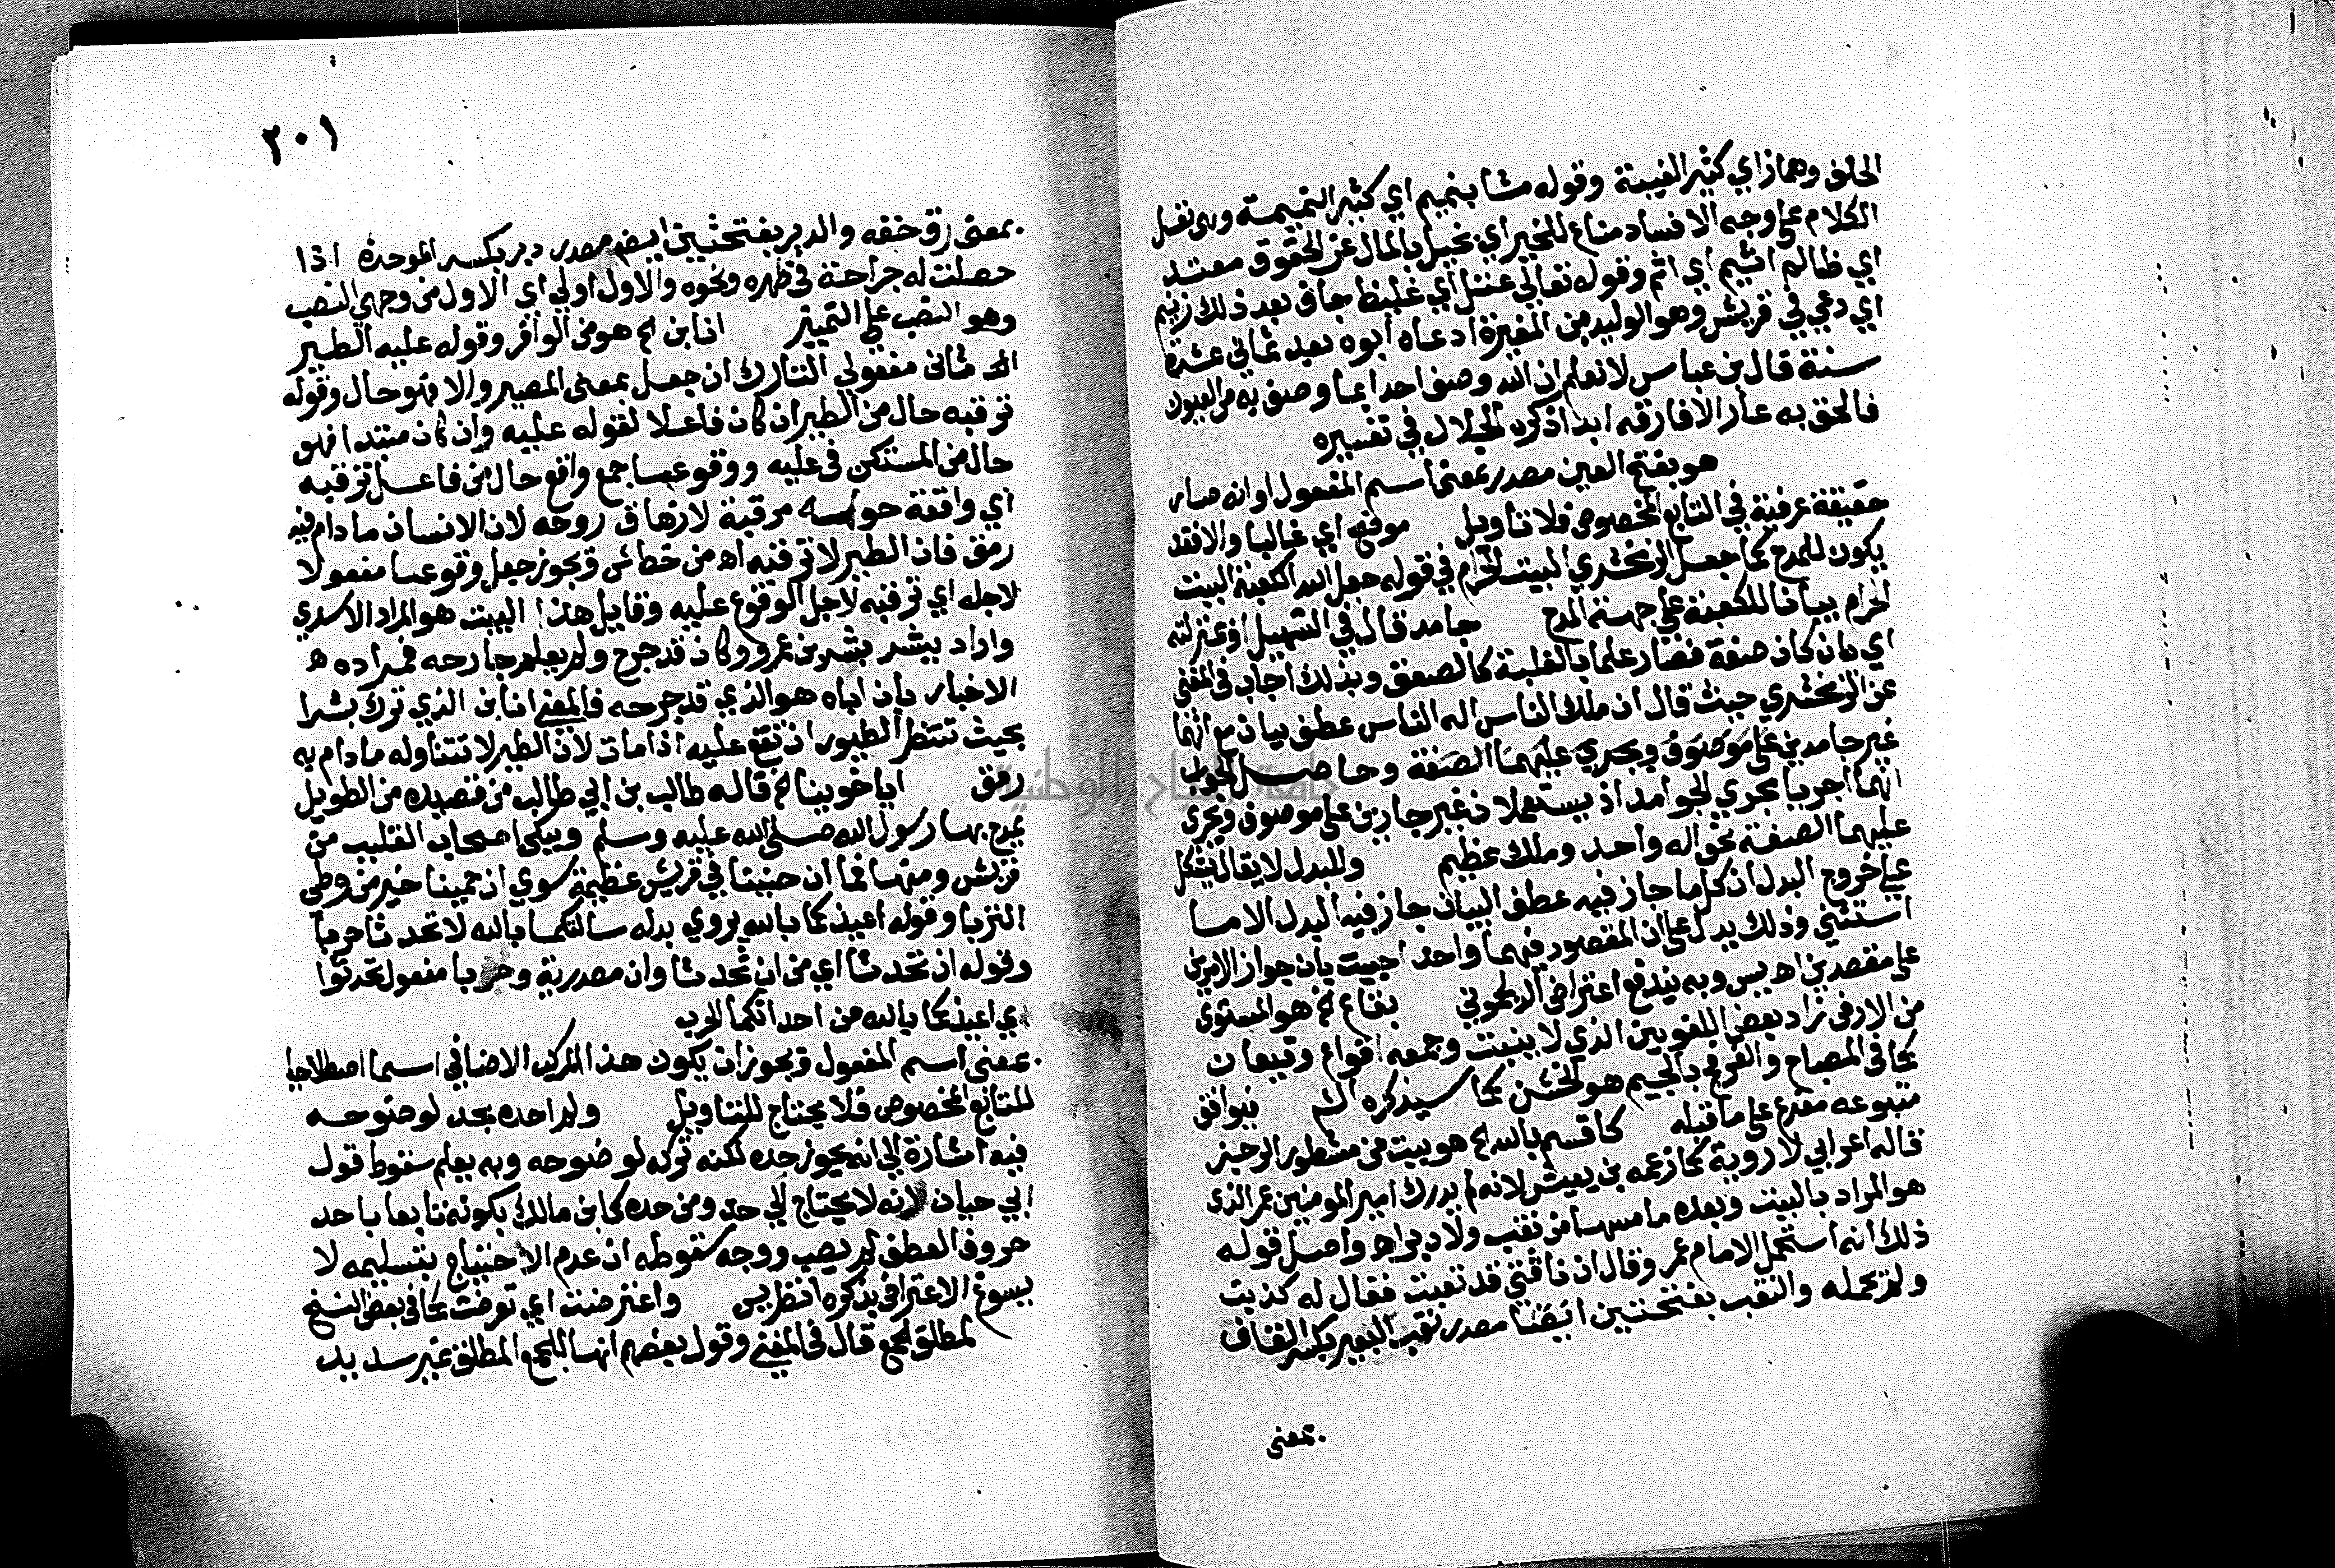 الحلف وهماز اي كثير الغيبة وقوله مشا بنميم اي كثير النميمة وهى نقل
الكلام على وجه الافساد مناع للخير اي بخيل بالمال عن الحقوق معتد
اي ظالم اثيم اي اثم وقوله تعالي عتل اي غليظ جاف بعد ذلك زنيم
اي دعي في قريش وهو الوليد بن المغيرة ادعاه ابوه بعد ثماني عشرة
سنة قال بن عباس لا نعلم ان الله وصف احدا بما وصفه به من العيوب
فالحق به عارا لا فارقه ابدا ذكره الجلال في تفسيره
هو بفتح العين مصدر بمعنى اسم المفعول او انه صار
حقيقة عرفية في التابع المخصوص فلا تاويل موضح اي غالبا والا فقد
يكون للمدح كما جعل الزمخشري البيت الحرام في قوله جعل الله الكعبة البيت
الحرام بيانا للكعبة علي جهة المدح جامد قال في التسهيل او بمنزلته
اي بان كان صفة فصار علما بالغلبة كالصعق وبذلك اجاب في المغني
عن الزمخشري حيث قال ان ملك الناس اله الناس عطف بيان مع انهما
غير جامدين علي موصوف ويجري عليهما الصفة وحاصل الجواب
انهما اجريا مجري الجوامد اذ يستعملان غير جارين على موصوف وتجري
عليهما الصفة نحو اله واحد وملك عظيم والبدل لا يقال يشكل
علي خروج البدل ان كل ما جاز فيه عطف البيان جاز فيه البدل الا ما
استثني وذلك يدل علي ان المقصود فيهما واحد اجيب بان جواز الامرين
على مقصدين اه يس وبه يندفع اعتراض الدلجوني بقاع الخ هو المستوي
من الارض زاد بعض اللغويين الذي لا ينبت وجمعه اقواع وقيعان
كما في المصباح والفرج بالجيم هو الخشن كما سيذكره الشم فيوافق
متبوعه مفرع على ما قبله كاقسم بالله الخ هو بيت من مشطور الرجز
قاله اعرابي لا روبة كما زعمه بن يعيش لانه لم يدرك امير المومنين عمر الذي
هو المراد بالبيت وبعده ما مسها من نقب ولا دبر اه واصل قوله
ذلك انه استحمل الامام عمر وقال ان ناقتي قد نقبت فقال له كذبت
ولم يحمله والنقب بفتحتين ايضا مصدر نقب البعير بكسر القاف
بمعنى
٢٠١
بمعنى رق خفه والدبر بفتحتين ايضا مصدر دبر بكسر الموحدة اذا
حصلت له جراحة في ظهره ونحوه والاول اولي اي الاول من وجهي النصب
وهو النصب علي التمييز انا بن الخ هو من الوافر وقوله عليه الطير
الخ ثاني مفعولي التارك ان جعل بمعنى المصير والا فهو حال وقوله
ترقبه حال من الطير ان كان فاعلا لقوله عليه وان كان مبتدا فهو
حال من المستكن في عليه ووقوعا جمع واقع حال من فاعل ترقبه
اي واقفة حوله مرقبة لازهاق روحه لان الانسان ما دام فيه
رمق فان الطير لا ترقبه اه من خط ش ويجوز جعل وقوعا مفعولا
لاجله اي ترقبه لاجل الوقوع عليه وقايل هذا البيت هو المراد الاسدي
واراد ببشر بشر بن عمرو وكان قد جرح ولم يعلم جارحه فمراده
الاخبار بان اباه هو الذي قد جرحه فالمعني انا بن الذي ترك بشرا
بحيث تنتظر الطيور ان تقع عليه اذا مات لان الطير لا تتناوله ما دام به
رمق ايا اخوينا الخ قاله طالب بن ابي طالب من قصيدة من الطويل
يمدح بها رسول الله صلى الله عليه وسلم ويبكي اصحاب القليب من
قريش ومنها فما ان جنينا في قريش عظيمة سوي ان حمينا خير من وطي
التربا وقوله اعيذكما بالله يروي بدله سالتكما بالله لا تحدثا حربا
وقوله ان تحدثا اي من ان تحدثا وان مصدرية وحربا مفعول تحدثوا
اي اعيذكما بالله من احداثكما الحرب
بمعنى اسم المفعول ويجوز ان يكون هذا المركب الاضافي اسما اصطلاحيا
للتابع المخصوص فلا يحتاج للتاويل ولم احده بحد لوضوحه
فيه اشارة الي انه يجوز حده لكنه تركه لوضوحه وبه يعلم سقوط قول
ابي حيان لانه لا يحتاج الي حد ومن حده كابن مالك بكونه تابعا باحد
حروف العطف لم يصب ووجه سقوطه ان عدم الاحتياج بتسليمه لا
يسوغ الاعتراض بذكره انظر يس واعترضت اي توضت كما في بعض النسخ
لمطلق الجمع قال في المغني وقول بعضهم انها للجمع المطلق غير سديد